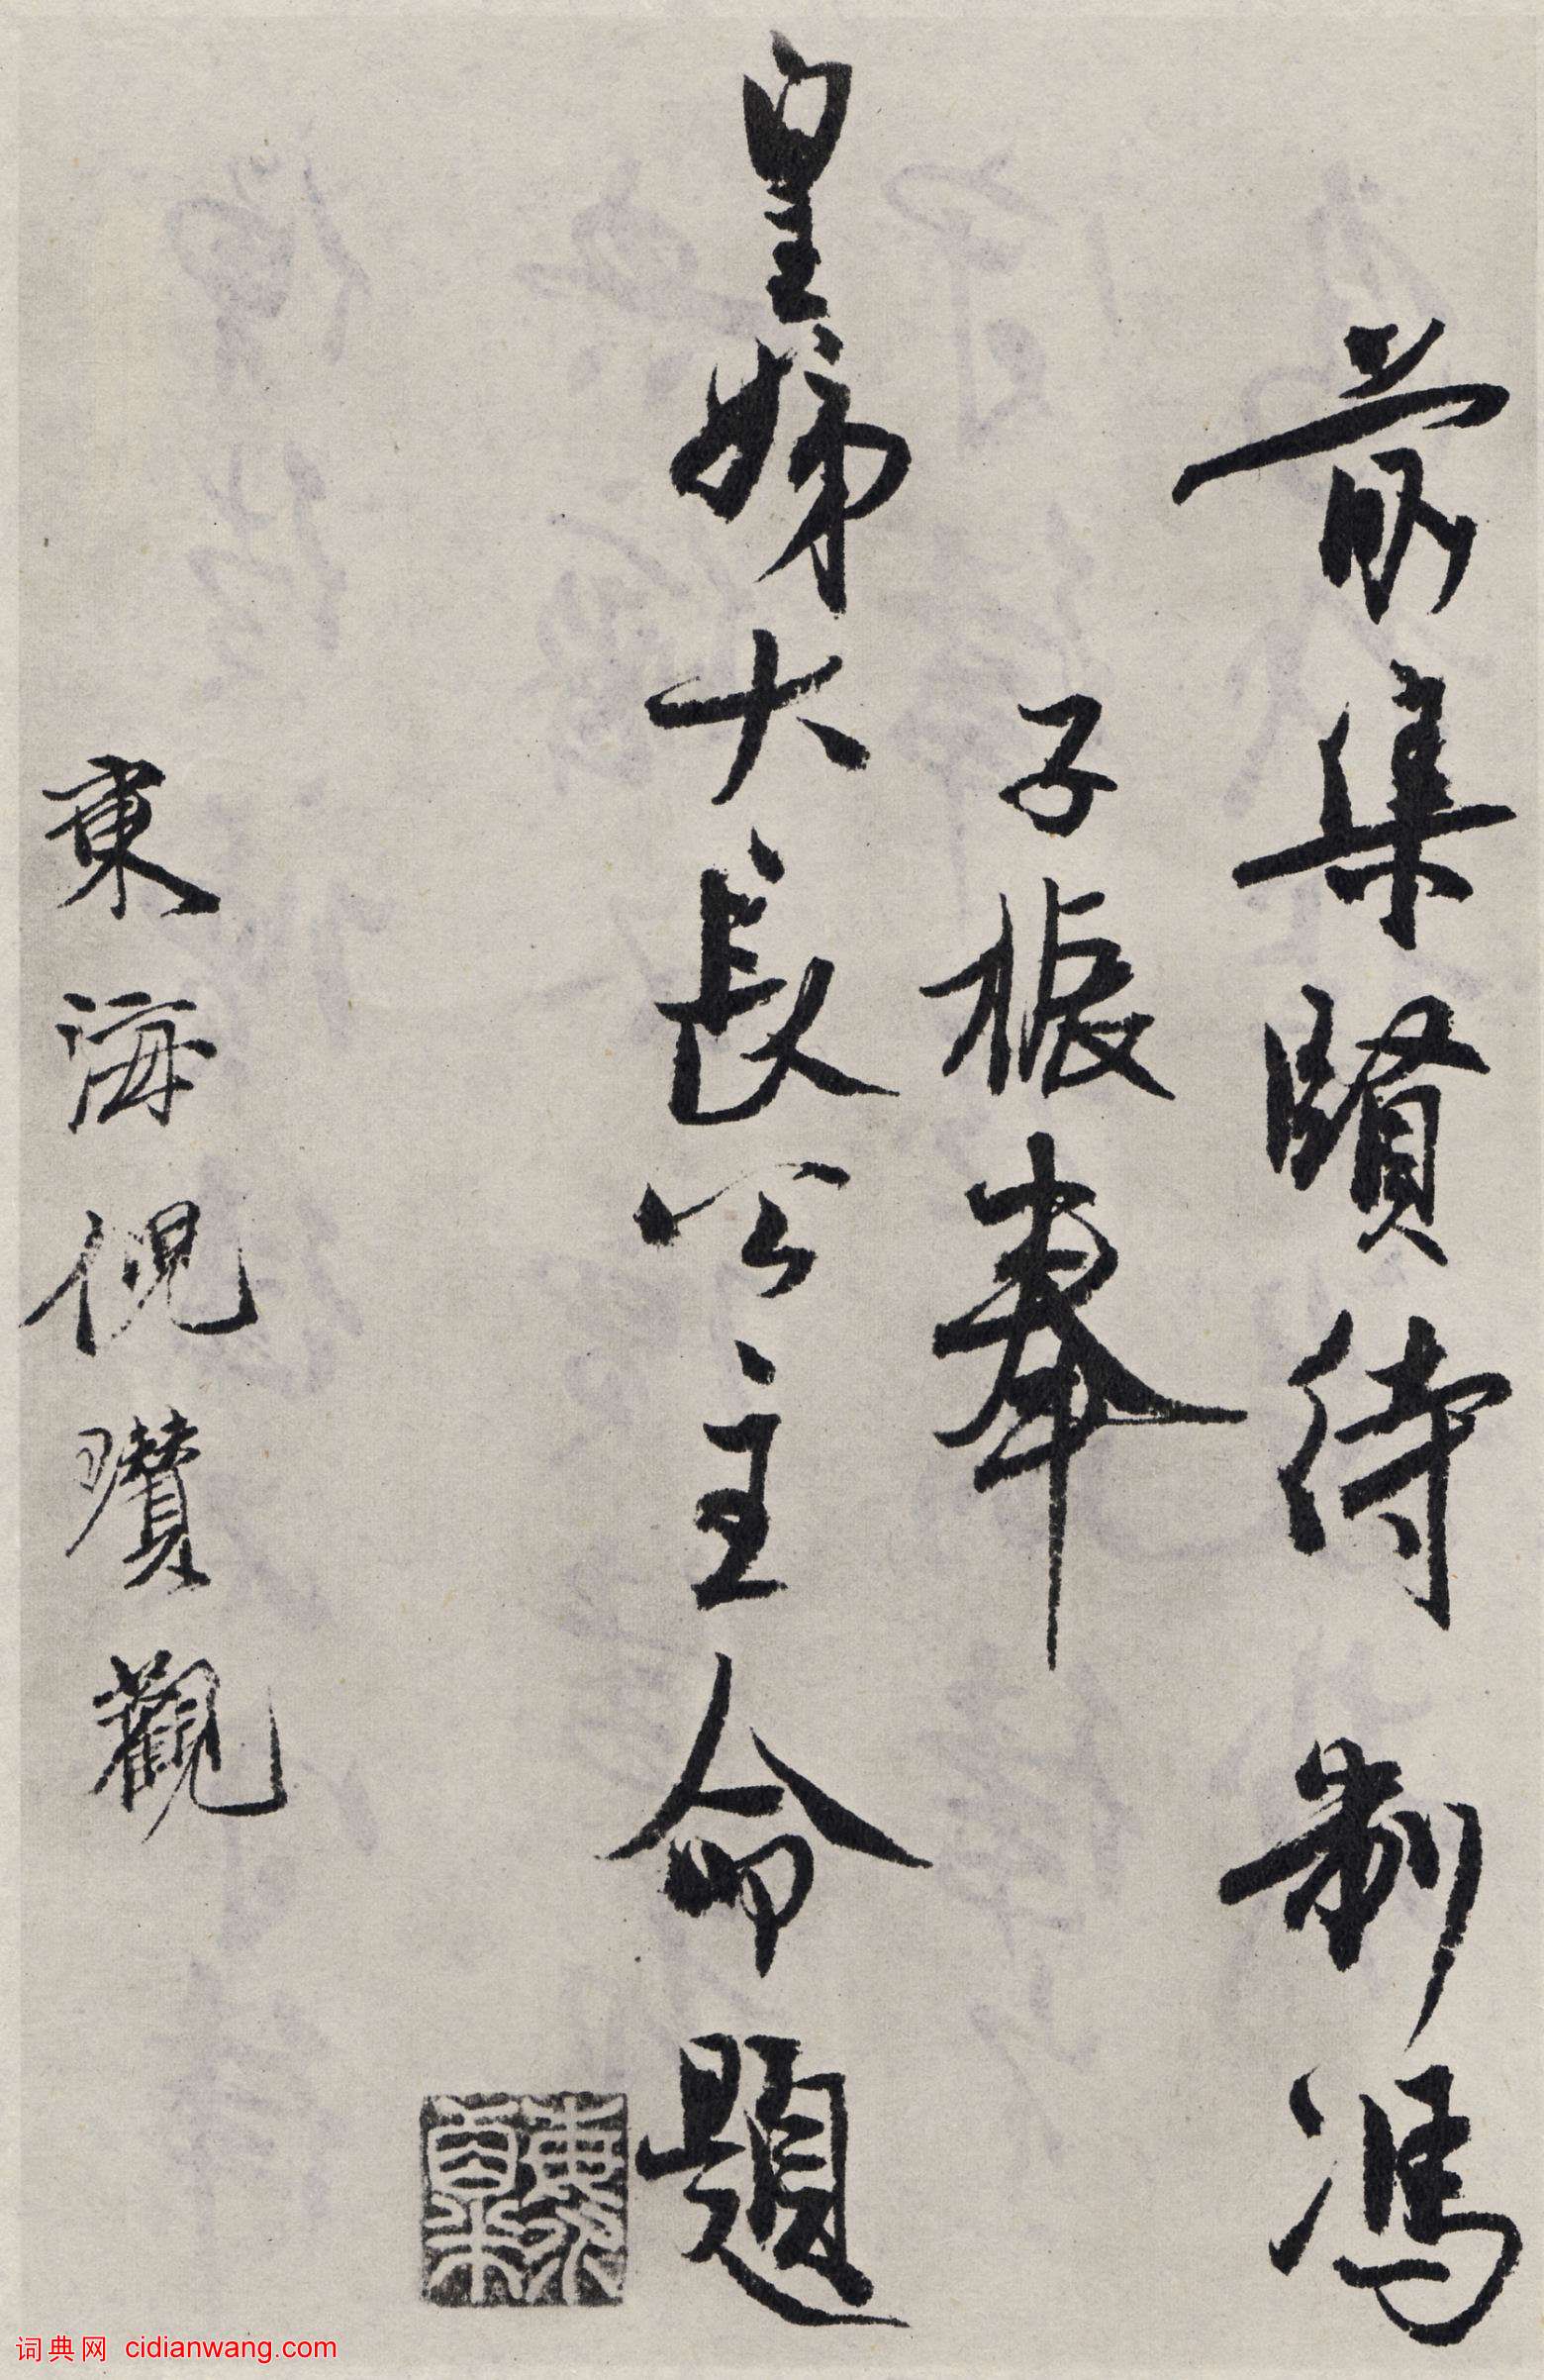 前集賢待制馮
子振奉
皇姊大長公主命題
東海倪瓚觀
词典网 cidianwang.com